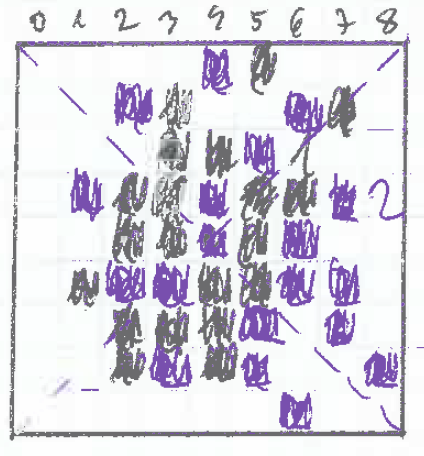 0 1 2 3 4 5 6 7 8
2